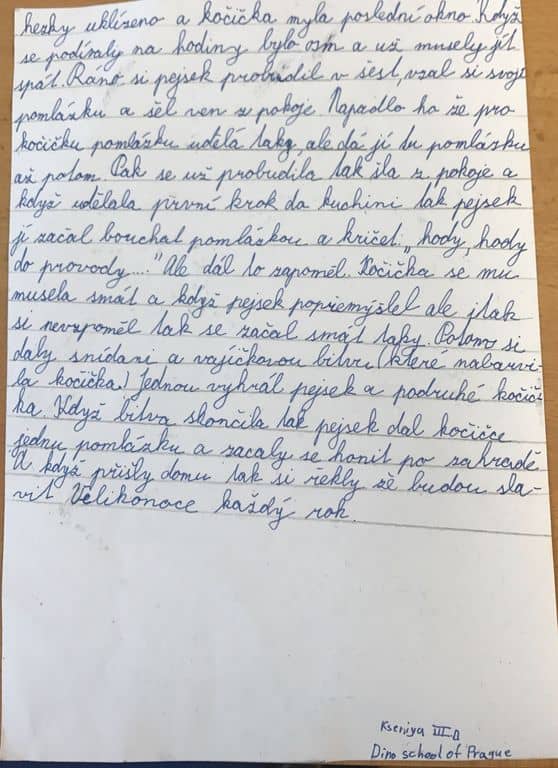 hezky uklízeno a kočička myla poslední okno. Když
se podívaly na hodiny bylo osm a už musely jít
spát. Ráno si pejsek probudil v šest, vzal si svoji
pomlázku a šel ven z pokoje. Napadlo ho že pro
kočičku pomlázku udělá taky, ale dá jí tu pomlázku
až potom. Pak se už probudila tak šla z pokoje a
když udělala první krok do kuchini tak pejsek
jí začal bouchat pomláskou a kričet: „hody, hody
do provody....." Ale dál to zapoměl. Kočička se mu
musela smát a když pejsek popřemýšlel ale jtak
si nevzpoměl tak se začal smát taky. Potom si
daly snídani a vajíčkovou bitvu (které nabarvi-
la kočička.) Jednou vyhrál pejsek a podruhé kočič-
ka. Když bitva skončila tak pejsek dal kočičce
jednu pomlázku a zacaly se honit po zahradě
A když přišly domu tak si řekly zě budou sla-
vit Velikonoce každý rok.
Kseniya III.D
Dino school of Prague